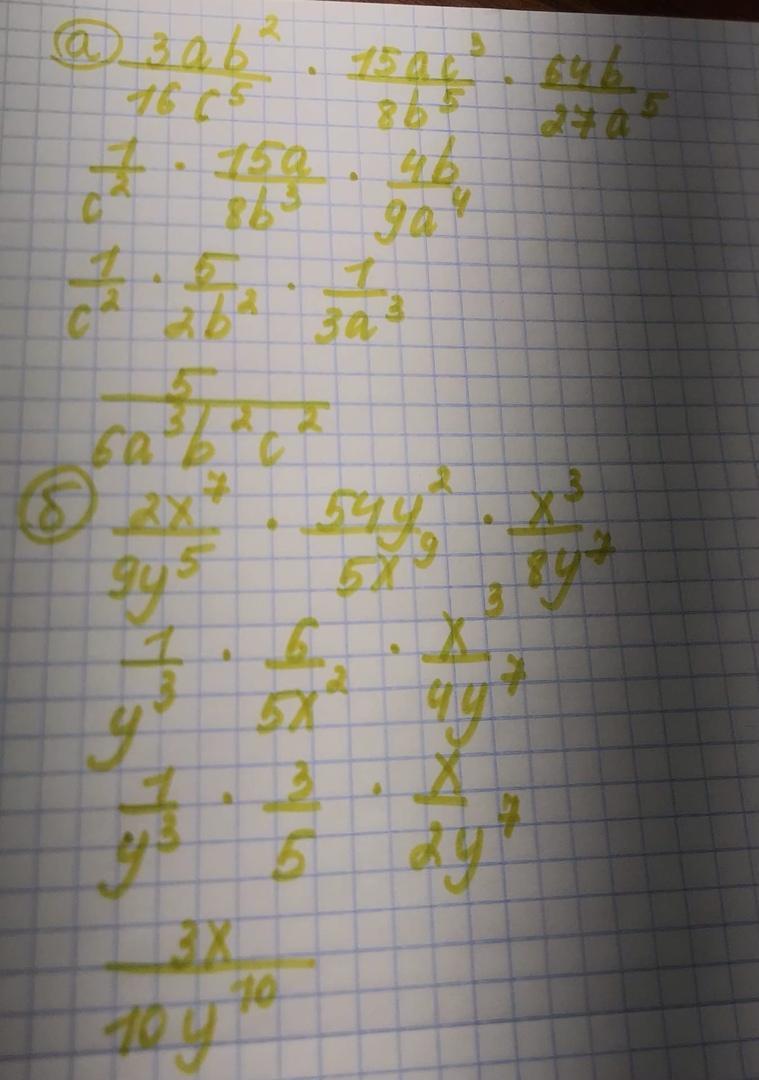 а) 3ab²/16c⁵ · 15ac³/8b⁵ · 64b/27a⁵
1/c² · 15a/8b³ · 4b/9a⁴
1/c² · 5/2b² · 1/3a³
5/6a³b²c²
б) 2x⁷/9y⁵ · 54y²/5x⁹ · x³/8y⁷
1/y³ · 6/5x² · x³/4y⁷
1/y³ · 3/5 · x/2y⁷
3x/10y¹⁰